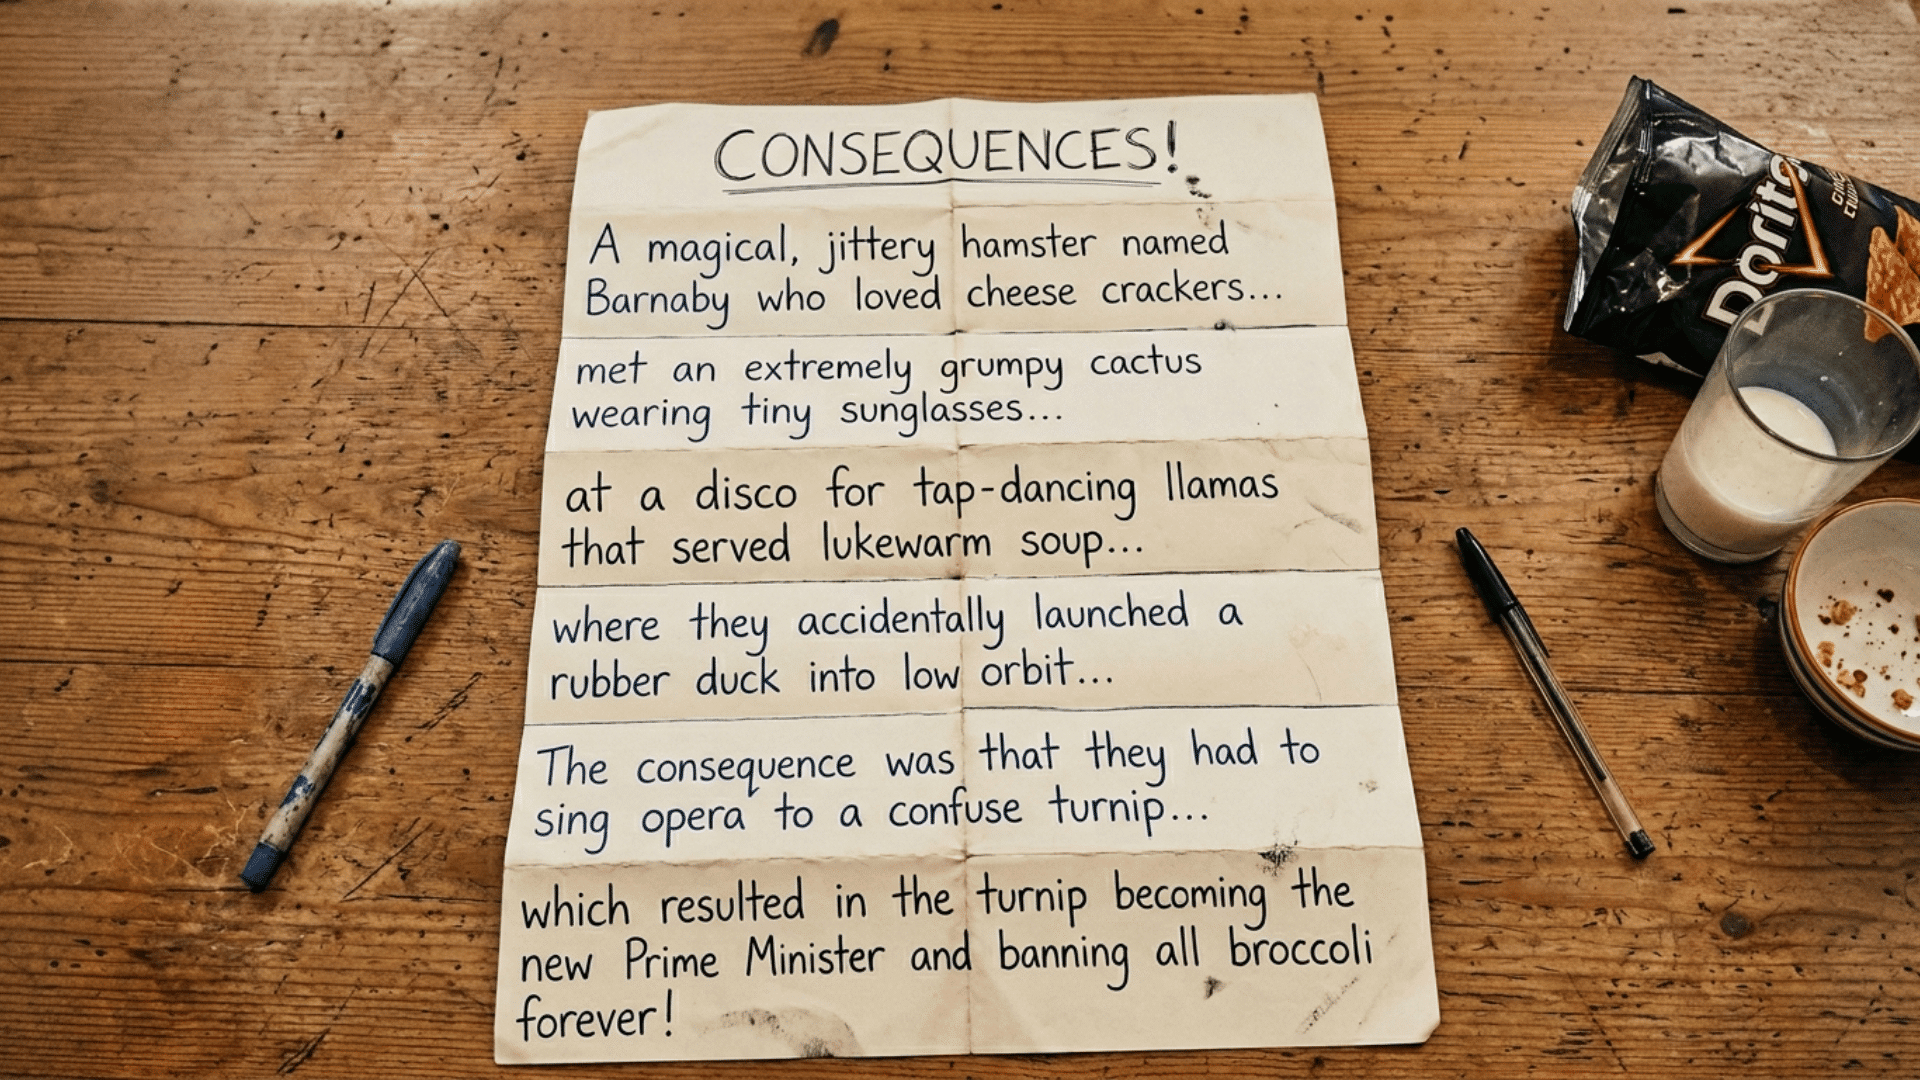 CONSEQUENCES!
A magical, jittery hamster named
Barnaby who loved cheese crackers...
met an extremely grumpy cactus
wearing tiny sunglasses...
at a disco for tap-dancing llamas
that served lukewarm soup...
where they accidentally launched a
rubber duck into low orbit...
The consequence was that they had to
sing opera to a confuse turnip...
which resulted in the turnip becoming the
new Prime Minister and banning all broccoli
forever!
Doritos